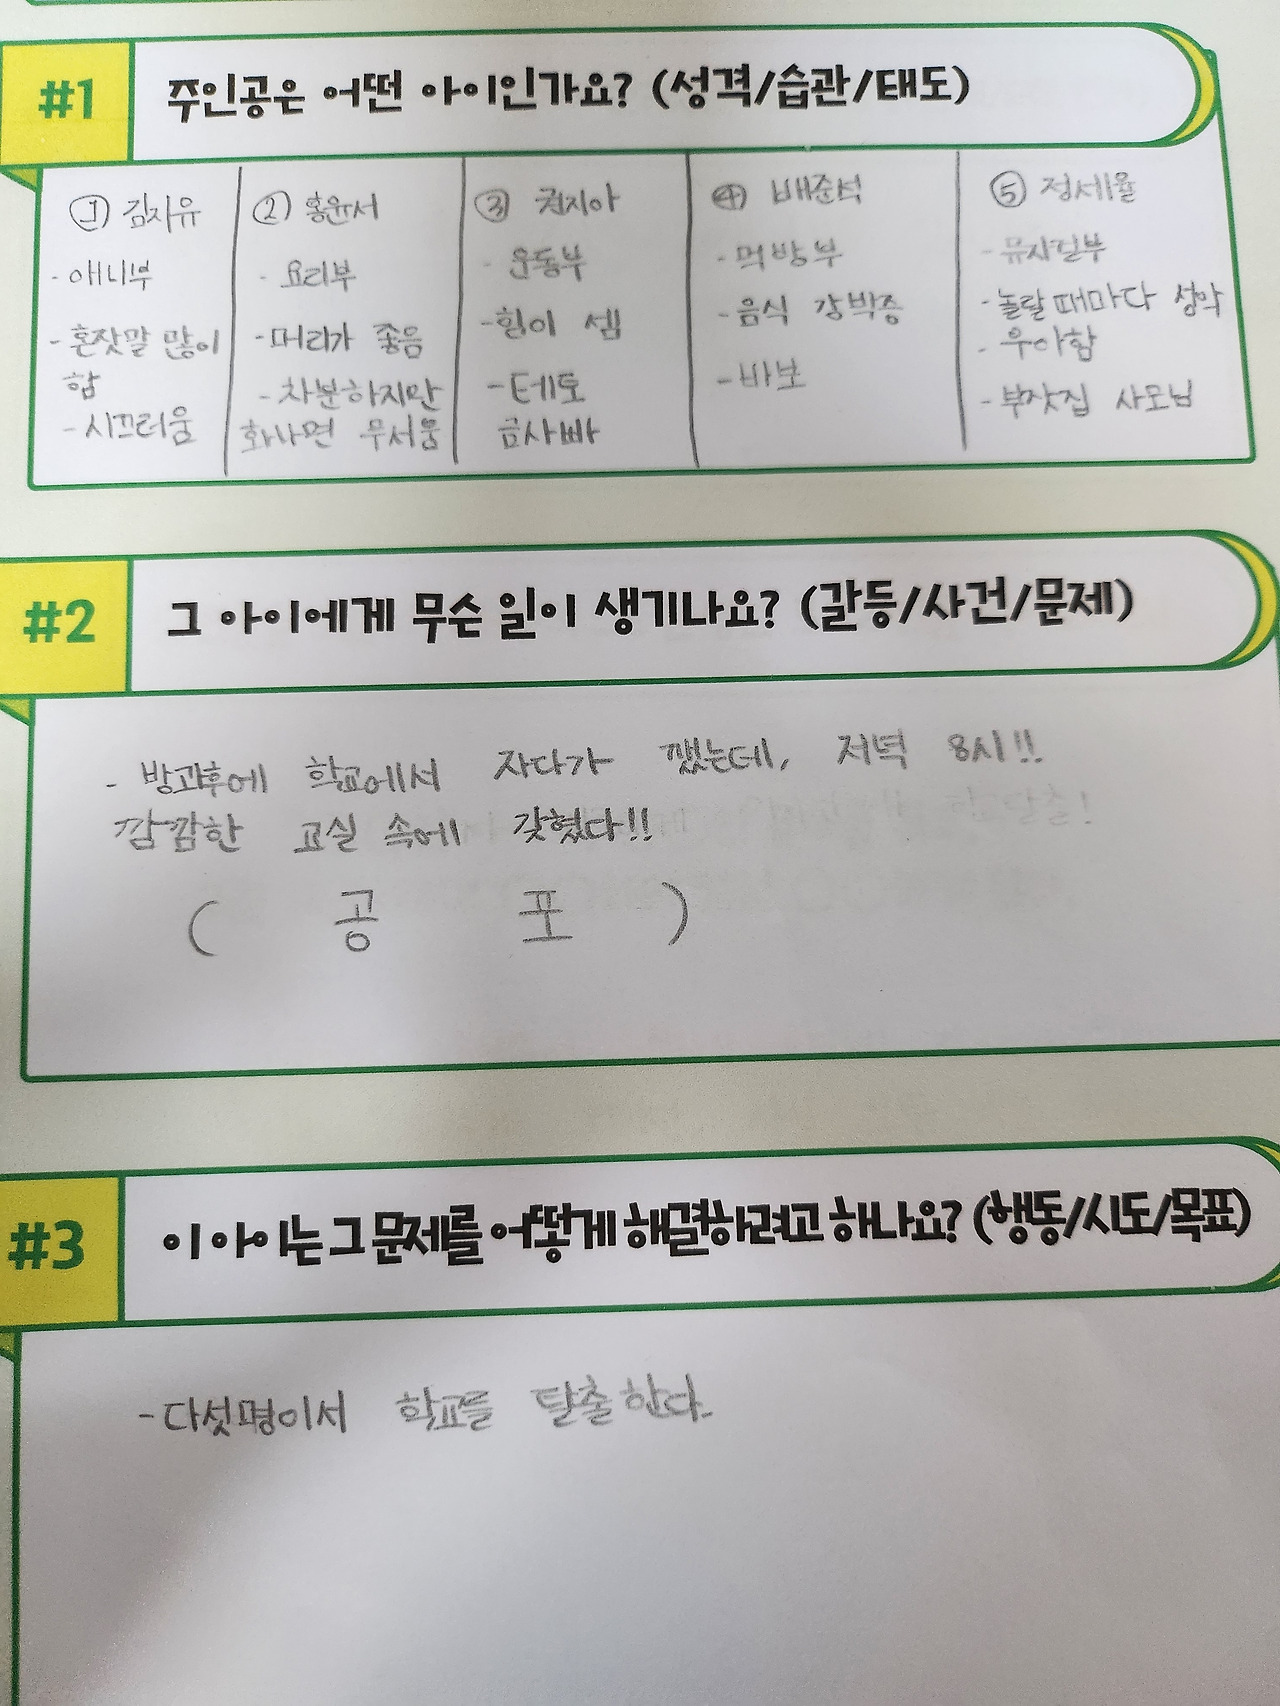 #1 주인공은 어떤 아이인가요? (성격/습관/태도)
① 김자유
- 애니부
- 혼잣말 많이
함
- 시끄러움
② 홍윤서
- 요리부
- 머리가 좋음
- 차분하지만
화나면 무서움
③ 권지아
- 운동부
- 힘이 셈
- 테토
금사빠
④ 배준석
- 먹방부
- 음식 강박증
- 바보
⑤ 정세율
- 뮤지컬부
- 놀랄 때마다 성악
- 우아함
- 부잣집 사모님
#2 그 아이에게 무슨 일이 생기나요? (갈등/사건/문제)
- 방과후에 학교에서 자다가 깼는데, 저녁 8시!!
깜깜한 교실 속에 갖혔다!!
( 공 포 )
#3 이 아이는 그 문제를 어떻게 해결하려고 하나요? (행동/시도/목표)
- 다섯명이서 학교를 탈출한다.